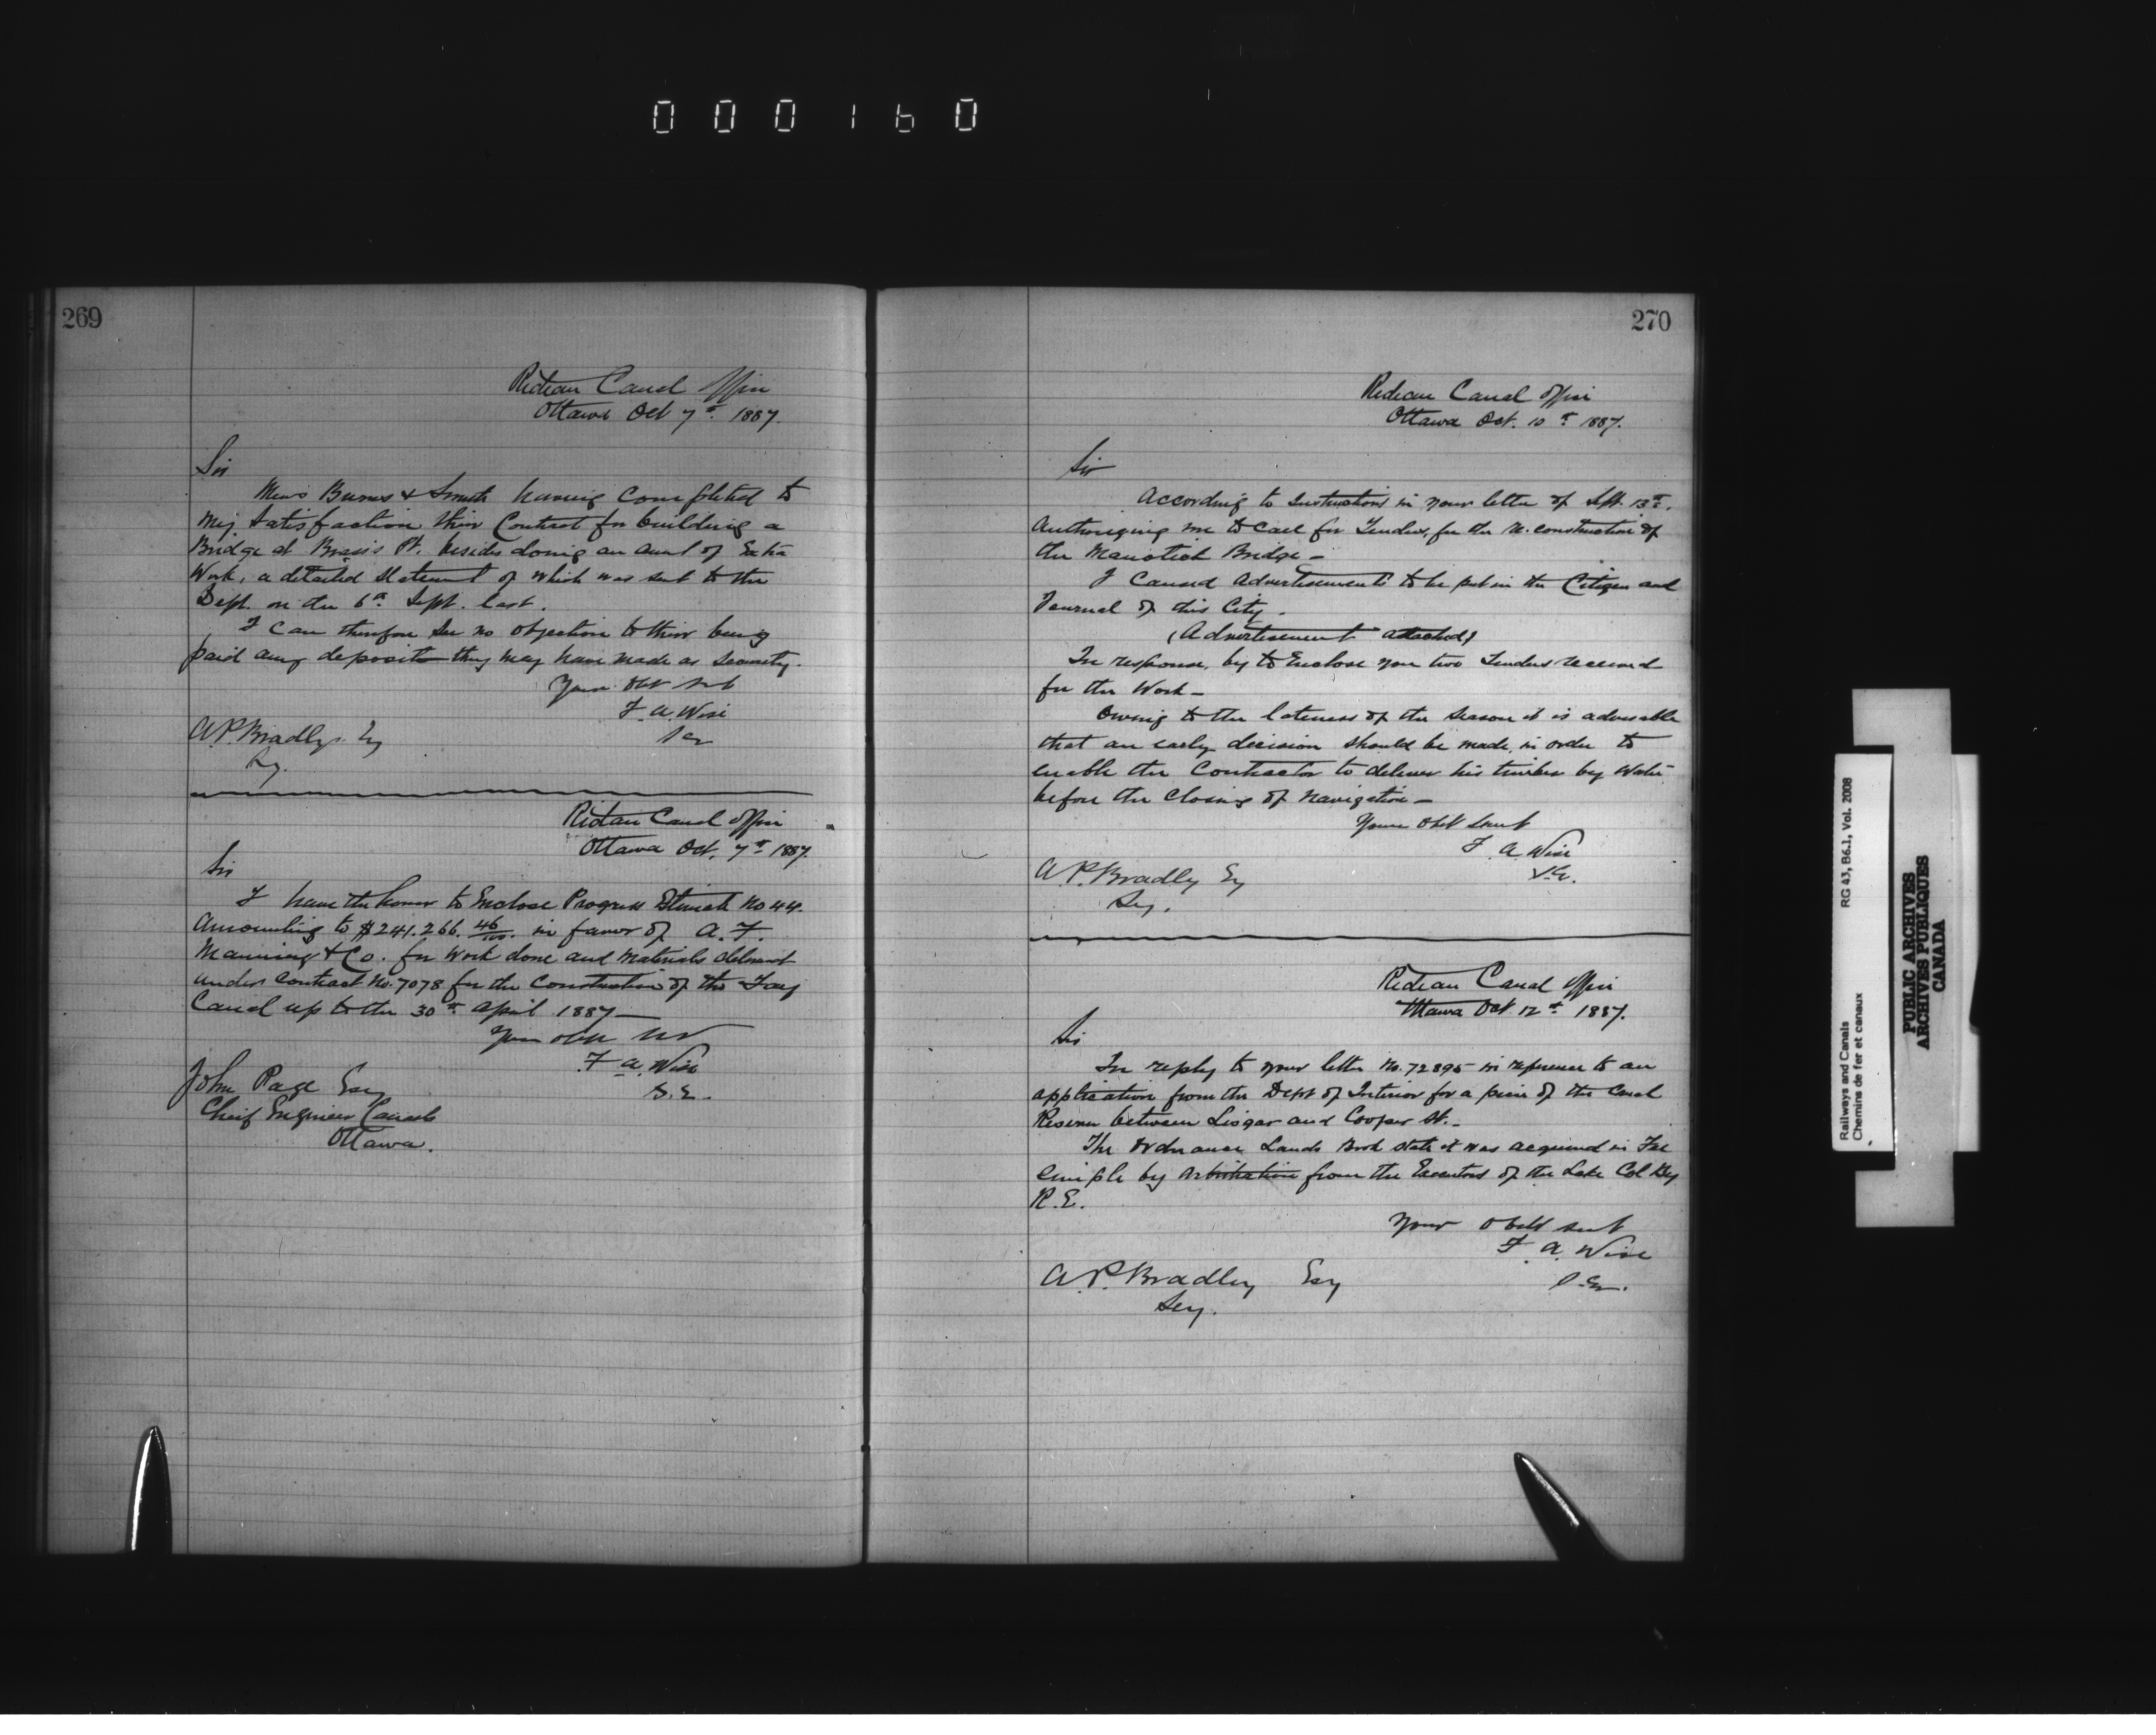 000160
269
Rideau Canal Office
Ottawa Oct 7th. 1887.
Sir
Mess Burns & Smith having Completed to
My Satisfaction thier Contract for building a
Bridge at Brass's Pt. besides doing an amt of Extra
Work, a detailed Statement of which was sent to the
Dept. on the 6th Sept. last.
I can therefore See no objection to thier being
paid any deposit they may have made as Security.
Your Obt Svt
F. A. Wise
A. P. Bradley Esq
Sey.
Rideau Canal Office
Ottawa Oct. 7th 1887.
Sir
I have the honor to Enclose Progress Estimate No 44.
Amounting to $241.266. 46/100. in favor of A. F.
Manning & Co. for Work done and Materials delivered
under Contract No. 7078 for the Construction of the Tay
Canal up to the 30th April 1887—
Your Obt Svt
F. A. Wise
S. E.
John Page Esq
Cheif Engineer Canals
Ottawa.
270
Rideau Canal Office
Ottawa Oct. 10th 1887.
Sir
According to Instructions in your letter of Sept. 13th.
Authorizing me to Call for Tenders, for the re-construction of
the Manotick Bridge—
I caused Advertisements to be put in the Citizen and
Journal of this City.
(Advertisement attached)
In response, beg to Enclose you two Tenders received
for the Work—
Owing to the lateness of the Season it is advisable
that an early decision should be made, in order to
enable the Contractor to deliver his timber by Water
before the Closing of Navigation—
Your Obt Servt
F. A. Wise
S. E.
A. P. Bradley Esq
Sey.
Rideau Canal Office
Ottawa Oct. 12th 1887.
Sir
In reply to your letter No. 72895 in reference to an
application from the Dept of Interior for a piece of the Canal
Reserve between Lisgar and Cooper St.—
The Ordnance Lands Book state it was acquired in Fee
Simple by Arbitration from the Executors of the Late Col By
R. E.
Your Obdt Servt
F. A. Wise
S. E.
A. P. Bradley Esq
Sey.
RG 43, B6.1, Vol. 2008
Railways and Canals
Chemins de fer et canaux
PUBLIC ARCHIVES
ARCHIVES PUBLIQUES
CANADA